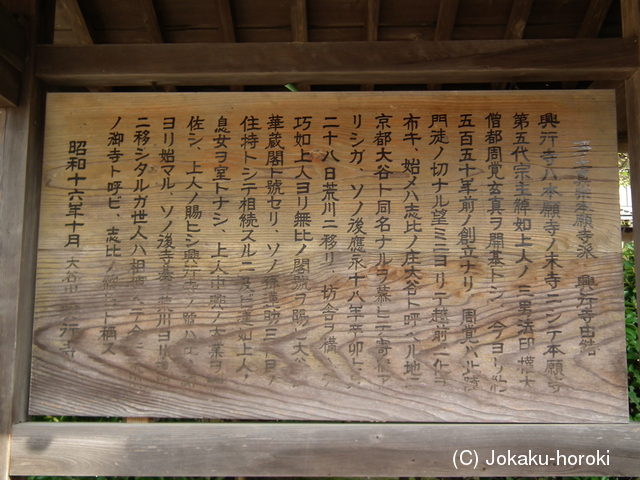 本願寺派 興行寺由緒
興行寺ハ本願寺ノ末寺ニシテ本願寺
第五代宗主綽如上人ノ三男法印権大
僧都周覚玄真ヲ開基トシ今ヨリ
五百五十年前ノ創立ナリ周覚ハ
門徒ノ切ナル望ミニヨリテ越前ニ
布キ、始メハ志比ノ庄大谷ト呼ベル地ニ
京都大谷ト同名ナルヲ慕ヒテ寄
リシガ、ソノ後應永十八年辛卯
二十八日荒川ニ移リ、坊舎ヲ備
巧如上人ヨリ無比ノ閣号ヲ賜
華蔵閣ト號セリ、ソノ
住持トシテ相続スルニ及ビ蓮如上人ノ
息女ヲ室トナシ、上人中興ノ大業ヲ
佐シ、上人ノ賜ヒシ興行寺ノ號ハ
ヨリ始マル、ソノ後寺基ヲ荒川ヨリ
ニ移シタルガ世人ハ相
ノ御寺ト呼ビ、志比ノ ト称ス
昭和十六年十月 大谷 興行寺
(C) Jokaku-horoki